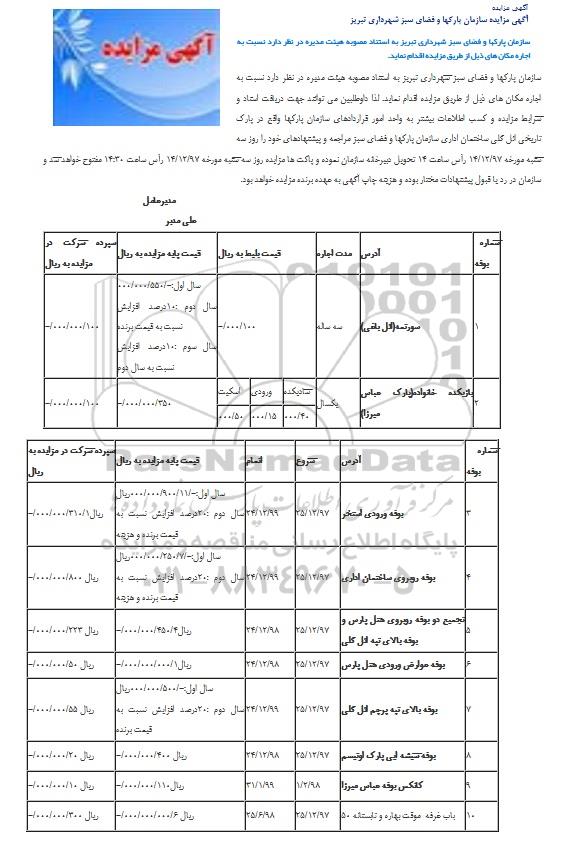 آگهی مزایده
آگهی مزایده سازمان پارکها و فضای سبز شهرداری تبریز
آگهی مزایده
سازمان پارکها و فضای سبز شهرداری تبریز به استناد مصوبه هیئت مدیره در نظر دارد نسبت به
اجاره مکان های ذیل از طریق مزایده اقدام نماید.
سازمان پارکها و فضای سبز شهرداری تبریز به استناد مصوبه هیئت مدیره در نظر دارد نسبت به
اجاره مکان های ذیل از طریق مزایده اقدام نماید. لذا داوطلبین می توانند جهت دریافت اسناد و
شرایط مزایده و کسب اطلاعات بیشتر به واحد امور قراردادهای سازمان پارکها واقع در پارک
تاریخی ائل گلی ساختمان اداری سازمان پارکها و فضای سبز مراجعه و پیشنهادهای خود را روز سه
شنبه مورخه ۱۴/۱۲/۹۷ رأس ساعت ۱۴ تحویل دبیرخانه سازمان نموده و پاکت ها مزایده روز سه شنبه مورخه ۱۴/۱۲/۹۷ رأس ساعت ۱۴:۳۰ مفتوح خواهد شد و
سازمان در رد یا قبول پیشنهادات مختار بوده و هزینه چاپ آگهی به عهده برنده مزایده خواهد بود.
مدیرعامل
علی مدبر
شماره بوفه آدرس مدت اجاره قیمت بلیط به ریال قیمت پایه مزایده به ریال سپرده شرکت در مزایده به ریال
۱ سورتمه(ائل باغی) سه ساله ۱۰۰/۰۰۰/- سال اول:-/۵۵۰/۰۰۰/۰۰۰
سال دوم :۱۰درصد افزایش
نسبت به قیمت برنده
سال سوم :۱۰درصد افزایش
نسبت به سال دوم
۱۰۰/۰۰۰/۰۰۰/-
۲ بازیکده خانواده(پارک عباس میرزا) یکسال شادیکده ورودی اسکیت ۳۵۰/۰۰۰/۰۰۰/- ۱۰۰/۰۰۰/۰۰۰/-
۴۰/۰۰۰ ۱۵/۰۰۰ ۵۰/۰۰۰
شماره بوفه آدرس شروع اتمام قیمت پایه مزایده به ریال سپرده شرکت در مزایده به ریال
۳ بوفه ورودی استخر ۲۵/۱۲/۹۷ ۲۴/۱۲/۹۹ سال اول:-/۱۱/۹۰۰/۰۰۰/۰۰۰ریال
سال دوم :۲۰درصد افزایش نسبت به
قیمت برنده و هزینه
۱/۳۱۰/۰۰۰/۰۰۰/-ریال
۴ بوفه روبروی ساختمان اداری ۲۵/۱۲/۹۷ ۲۴/۱۲/۹۹ سال اول:-/۷/۲۵۰/۰۰۰/۰۰۰ریال
سال دوم :۲۰درصد افزایش نسبت به
قیمت برنده و هزینه
۸۰۰/۰۰۰/۰۰۰/- ریال
۵ تجمیع دو بوفه روبروی هتل پارس و بوفه بالای تپه ائل گلی ۲۵/۱۲/۹۷ ۲۴/۱۲/۹۸ ۴/۴۵۰/۰۰۰/۰۰۰/-ریال ۲۲۳/۰۰۰/۰۰۰/- ریال
۶ بوفه عوارض ورودی هتل پارس ۲۵/۱۲/۹۷ ۲۴/۱۲/۹۸ ۱/۰۰۰/۰۰۰/۰۰۰/-ریال ۵۰/۰۰۰/۰۰۰/- ریال
۷ بوفه بالای تپه پرچم ائل گلی ۲۵/۱۲/۹۷ ۲۴/۱۲/۹۹ سال اول:-/۵۰۰/۰۰۰/۰۰۰ریال
سال دوم :۲۰درصد افزایش نسبت به
قیمت برنده
۵۵/۰۰۰/۰۰۰/- ریال
۸ بوفه شیشه ایی پارک اوتیسم ۲۵/۱۲/۹۷ ۲۴/۱۲/۹۸ ۴۰۰/۰۰۰/۰۰۰/- ریال ۲۰/۰۰۰/۰۰۰/- ریال
۹ کانکس بوفه عباس میرزا ۱/۲/۹۸ ۳۱/۱/۹۹ ۱۱۰/۰۰۰/۰۰۰/-ریال ۱۰/۰۰۰/۰۰۰/- ریال
۱۰ ۵۰ باب غرفه موقت بهاره و تابستانه ۲۵/۱۲/۹۷ ۲۵/۶/۹۸ ۶/۰۰۰/۰۰۰/۰۰۰/- ریال ۳۰۰/۰۰۰/۰۰۰/- ریال
ParsNamadData
مرکز فرآوری اطلاعات پارس نماد داده ها
پایگاه اطلاع رسانی مناقصه و مزایده
۰۲۱-۸۸۳۴۹۶۷۰-۵